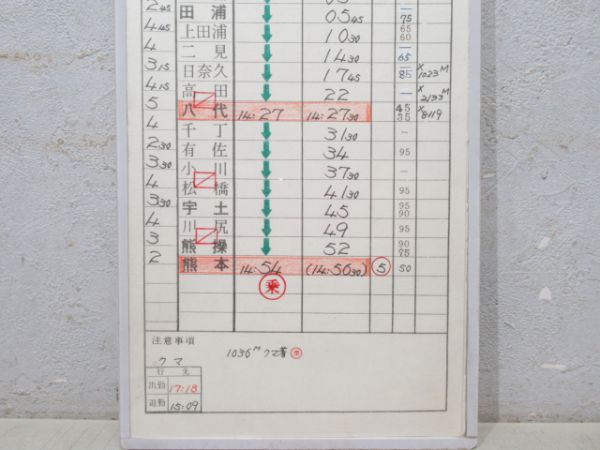 2 45 田浦 05 45 75
4 45 上田浦 10 30 65 60
4 二見 14 30 65
3 15 日奈久 17 45 85 X 1023M
4 15 高田 22 X 2133M
5 八代 14:27 14:27 30 45 35 X 8119
4 千丁 31 30
2 30 有佐 34 95
3 30 小川 37 30
4 松橋 41 30 95
3 30 宇土 45 95 90
4 川尻 49 95
3 熊操 52 90 75
2 熊本 14:54 (14:56 30) ⑤ 50
乗
注意事項
1036M クマ着
クマ
行先
出勤 17:18
退勤 15:09